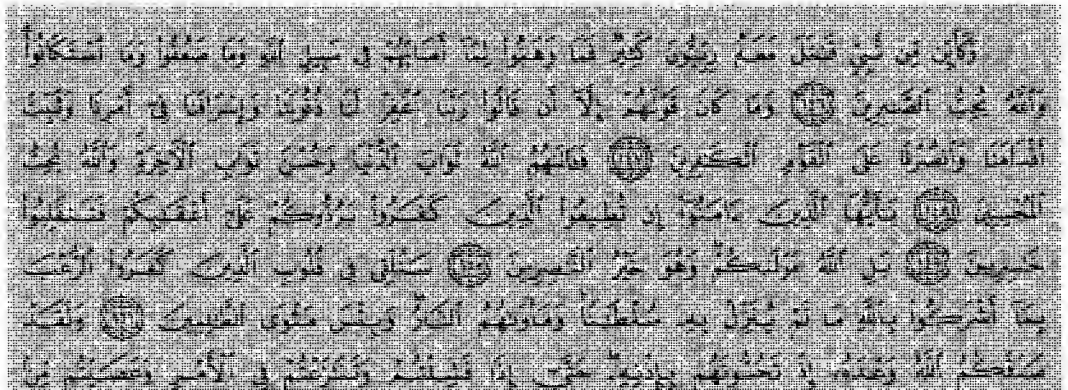 وَكَأَيِّن مِّن نَّبِيٍّ قَٰتَلَ مَعَهُۥ رِبِّيُّونَ كَثِيرٌ فَمَا وَهَنُوا۟ لِمَآ أَصَابَهُمْ فِى سَبِيلِ ٱللَّهِ وَمَا ضَعُفُوا۟ وَمَا ٱسْتَكَانُوا۟
وَٱللَّهُ يُحِبُّ ٱلصَّٰبِرِينَ ١٤٦ وَمَا كَانَ قَوْلَهُمْ إِلَّآ أَن قَالُوا۟ رَبَّنَا ٱغْفِرْ لَنَا ذُنُوبَنَا وَإِسْرَافَنَا فِىٓ أَمْرِنَا وَثَبِّتْ
أَقْدَامَنَا وَٱنصُرْنَا عَلَى ٱلْقَوْمِ ٱلْكَٰفِرِينَ ١٤٧ فَـَٔاتَىٰهُمُ ٱللَّهُ ثَوَابَ ٱلدُّنْيَا وَحُسْنَ ثَوَابِ ٱلْـَٔاخِرَةِ وَٱللَّهُ يُحِبُّ
ٱلْمُحْسِنِينَ ١٤٨ يَٰٓأَيُّهَا ٱلَّذِينَ ءَامَنُوٓا۟ إِن تُطِيعُوا۟ ٱلَّذِينَ كَفَرُوا۟ يَرُدُّوكُمْ عَلَىٰٓ أَعْقَٰبِكُمْ فَتَنقَلِبُوا۟
خَٰسِرِينَ ١٤٩ بَلِ ٱللَّهُ مَوْلَىٰكُمْ وَهُوَ خَيْرُ ٱلنَّٰصِرِينَ ١٥٠ سَنُلْقِى فِى قُلُوبِ ٱلَّذِينَ كَفَرُوا۟ ٱلرُّعْبَ
بِمَآ أَشْرَكُوا۟ بِٱللَّهِ مَا لَمْ يُنَزِّلْ بِهِۦ سُلْطَٰنًا وَمَأْوَىٰهُمُ ٱلنَّارُ وَبِئْسَ مَثْوَى ٱلظَّٰلِمِينَ ١٥١ وَلَقَدْ
صَدَقَكُمُ ٱللَّهُ وَعْدَهُۥٓ إِذْ تَحُسُّونَهُم بِإِذْنِهِۦ حَتَّىٰٓ إِذَا فَشِلْتُمْ وَتَنَٰزَعْتُمْ فِى ٱلْأَمْرِ وَعَصَيْتُم مِّنۢ